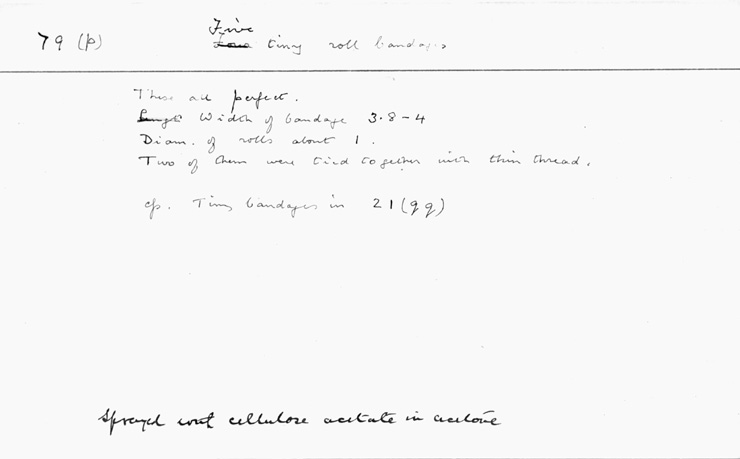 79 (p)
Five
Four tiny roll bandages
These all perfect.
Length Width of bandage 3.8-4
Diam. of rolls about 1.
Two of them were tied together with thin thread.
cp. Tiny bandages in 21(qq)
Sprayed with cellulose acetate in acetone